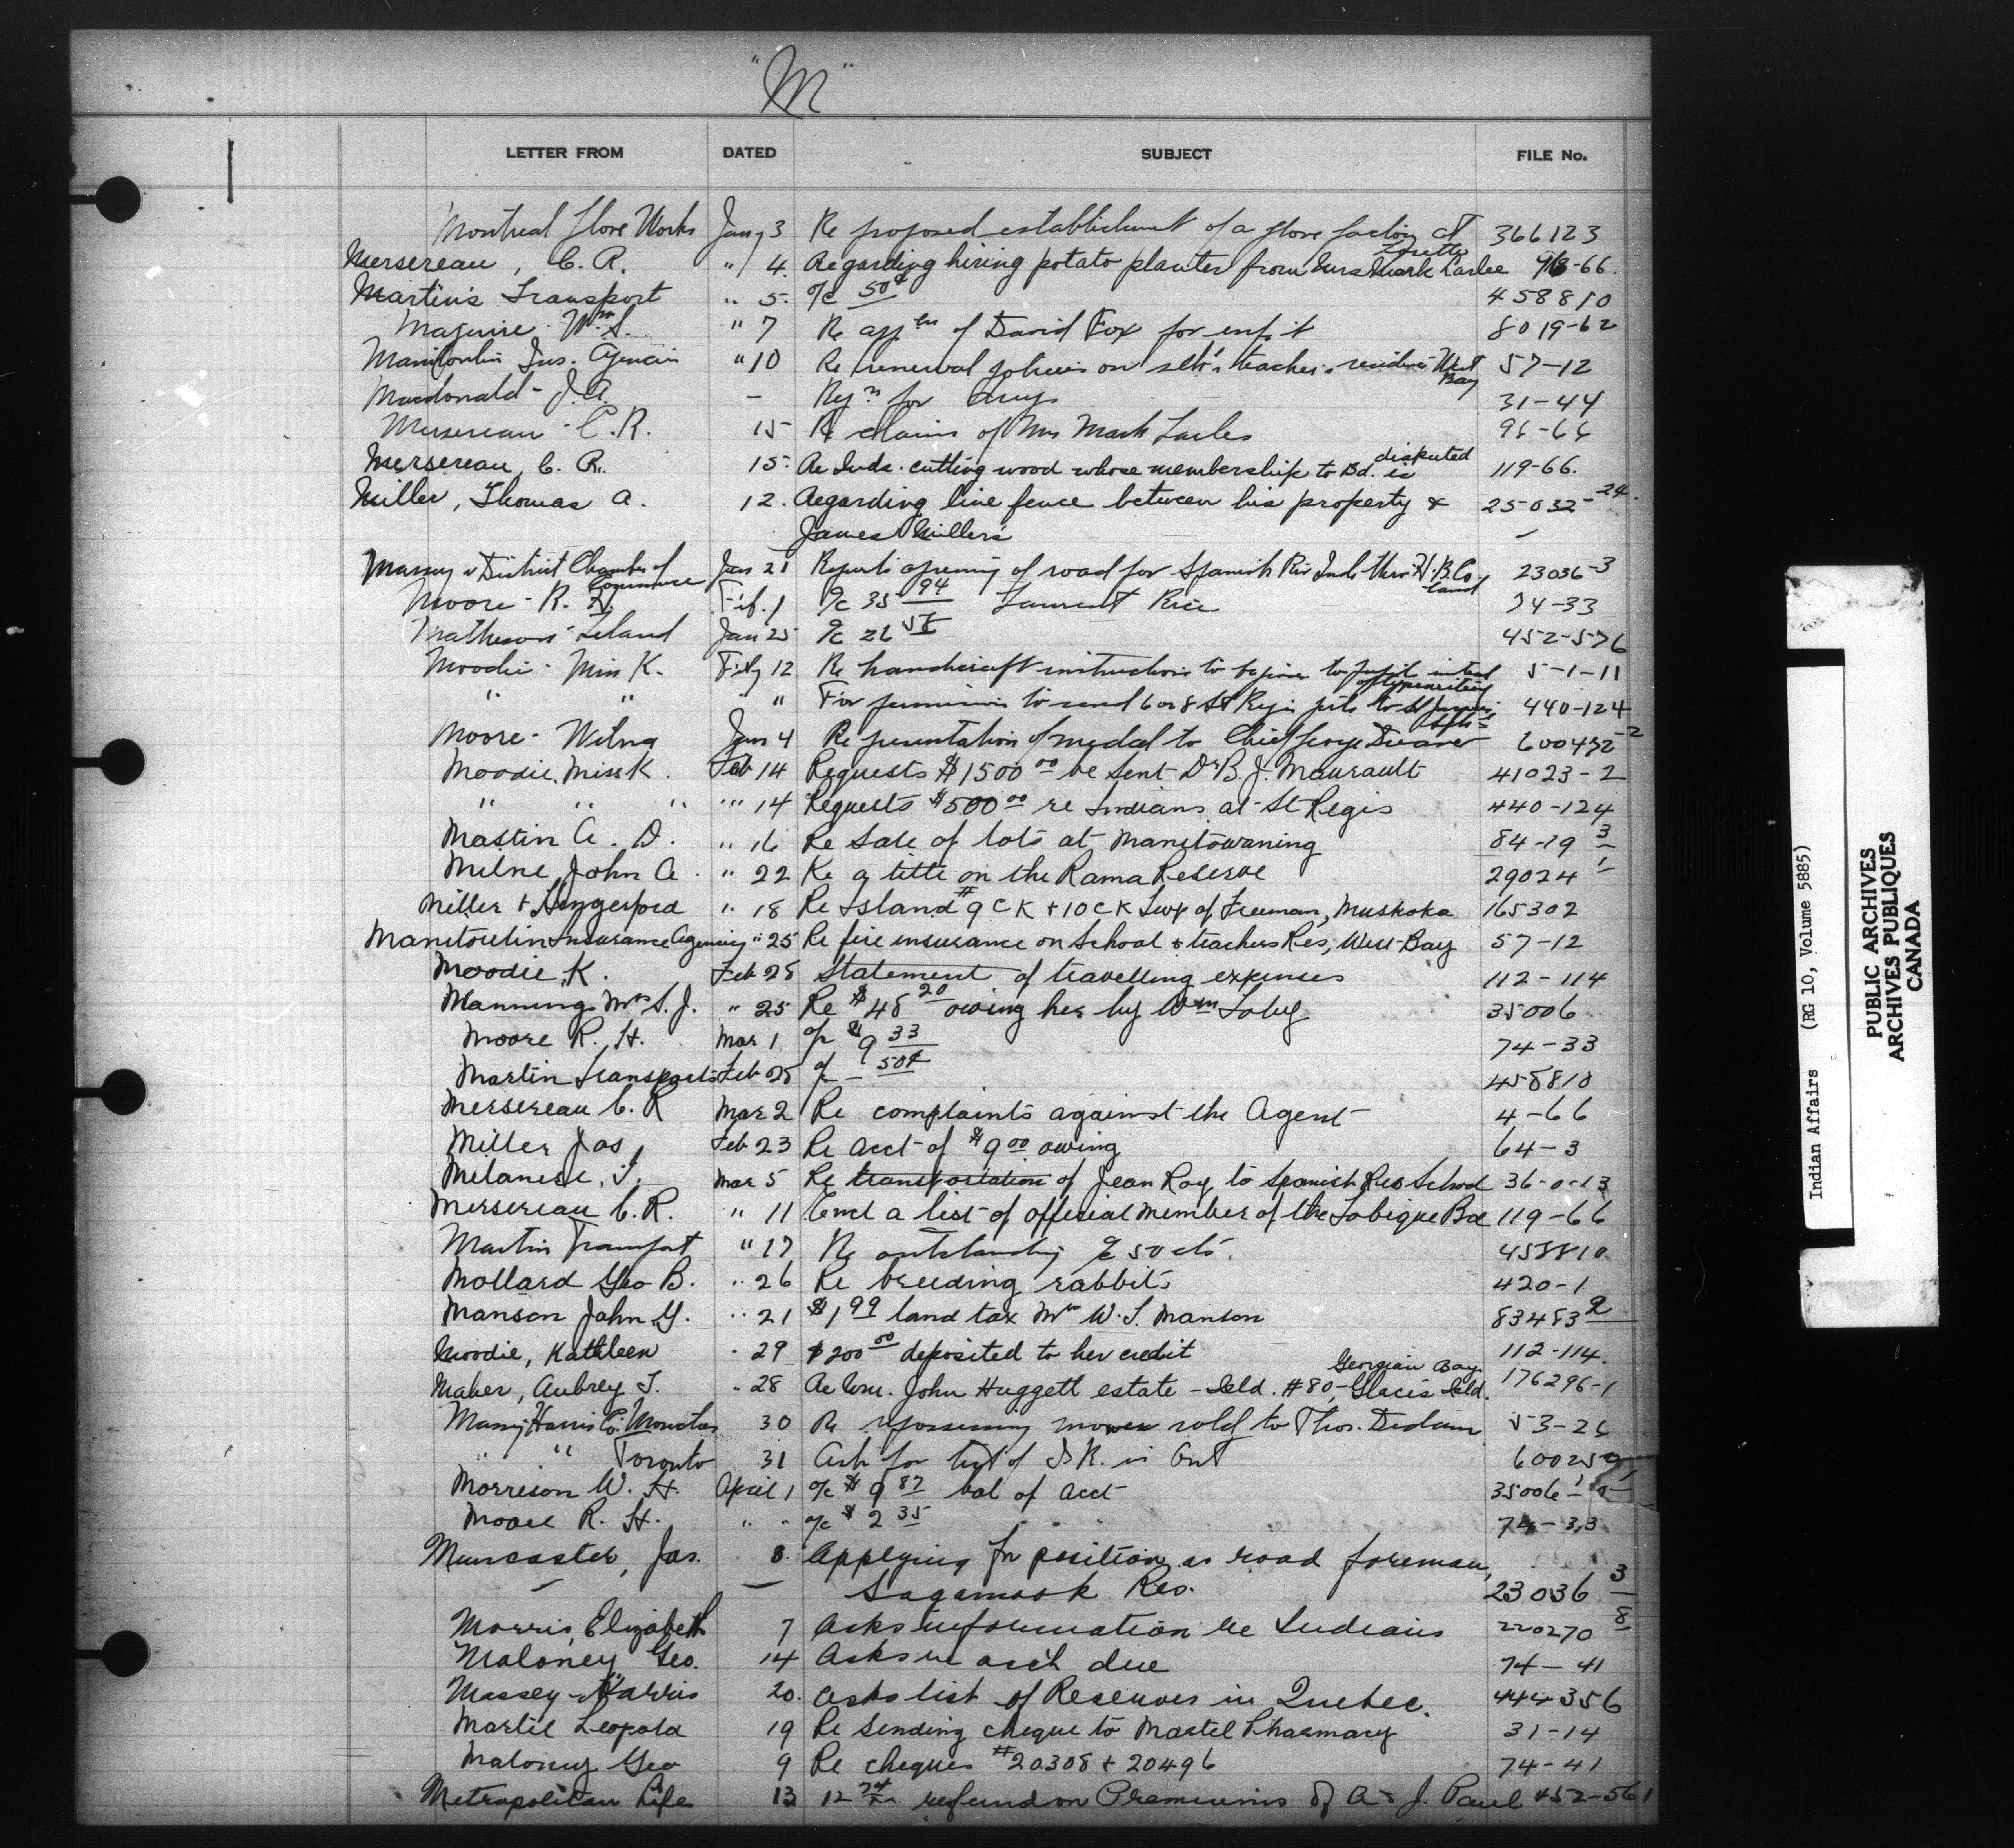 "M"
LETTER FROM DATED SUBJECT FILE No.
Montreal Glove Works Jany 3 Re proposed establishment of a glove factory at Lorette 366123
Mersereau, C. R. " 4. Regarding hiring potato planter from Mrs Mark 96-66.
Martin's Transport " 5. a/c 50¢ 458810
Maguire Wm. S. " 7 Re appln of David Fox for enf.t 8019-62
Manitoulin Ins. Agencies " 10 Re renewal policies on sch. & teacher's residence West Bay 57-12
Macdonald - J.A. - Reqn for drugs 31-44
Mersereau - C.R. 15 Re claim of Mrs Mark 96-66
Mersereau, C. R. 15. Re Inds. cutting wood whose membership to Bd. is disputed 119-66.
Miller, Thomas A. 12. Regarding line fence between his property & 25032-24.
James Miller's
Massey & District Chamber of Commerce Jan 21 Reports opening of road for Spanish Riv Inds thro H.B.Co. land 23036-3
Moore - R. H. Feb. 1 a/c 35 94 Laurent Rice 74-33
Matheson Island Jan 25 a/c 26 452-576
Moodie - Miss K. Feby 12 Re handicraft instruction to be given to pupil instead of typewriting 5-1-11
" " " For permission to send 6 or 8 St Regis to St 440-124
Moore - Wilna Jan 4 Re presentation of medal to Chief George 600432-2
Moodie, Miss K. Feb 14 Requests $1500 00 be sent Dr B. J. Maurault 41023-2
" " " " 14 Requests $500 00 re Indians at St Regis 440-124
Mastin A. D. " 16 Re sale of lots at Manitowaning 84-19 3
Milne, John A. " 22 Re a title on the Rama Reserve 29024 1
Miller & Hungerford " 18 Re Island # 9 CK + 10 CK Twp of Freeman, Muskoka 165302
Manitoulin Insurance Agencies " 25 Re fire insurance on School & teachers Res, West Bay 57-12
Moodie, K. Feb 28 Statement of travelling expenses 112-114
Mannings Mrs S. J. " 25 Re $48 20 owing her by Wm Toby 35006
Moore R. H. Mar 1 a/c $9 33 74-33
Martin Transports Feb 28 a/c - 50¢ 458810
Mersereau C. R Mar 2 Re complaints against the Agent 4-66
Miller Jas, Feb 23 Re acct of $9 00 owing 64-3
Milanese, T. Mar 5 Re transportation of Jean Roy to Spanish Res School 36-0-13
Mersereau C. R. " 11 Encl a list of official member of the Tobique Bd 119-66
Martin Transport " 17 Re outstanding a/c 50 cts. 458810
Mollard Geo B. " 26 Re breeding rabbits 420-1
Manson John G. " 21 $1 99 land tax Mr W. S. Manson 83483 2
Moodie, Kathleen " 29 $200 00 deposited to her credit 112-114.
Maher, Aubrey T. " 28 Re Com. John Huggett estate - Isld. #80 - Glacis Isld. Georgian Bay 176296-1
Massey Harris Co. Moncton 30 Re repossessing mower sold to Thos. Dedam 53-26
" " Toronto 31 Ask for list of I.R. in Ont 600259
Morrison W. H. April 1 a/c $9 87 bal of acct 35006-1
Moore R. H. " " a/c $2 35 74-33
Muncaster, Jas. 8. Applying for position as road foreman,
Sagamook Res. 23036 3
Morris, Elizabeth 7 Asks information re Indians 220270 8
Maloney Geo. 14 Asks re acc't due 74-41
Massey-Harris 20. Asks list of Reserves in Quebec. 444-356
Martel Leopold 19 Re sending cheque to Martel Pharmacy 31-14
Maloney Geo 9 Re cheques #20308 + 20496 74-41
Metropolitan Life 13 12 74 refund on Premiums of A & J. Paul 452-561
Indian Affairs (RG 10, Volume 5885)
PUBLIC ARCHIVES
ARCHIVES PUBLIQUES
CANADA